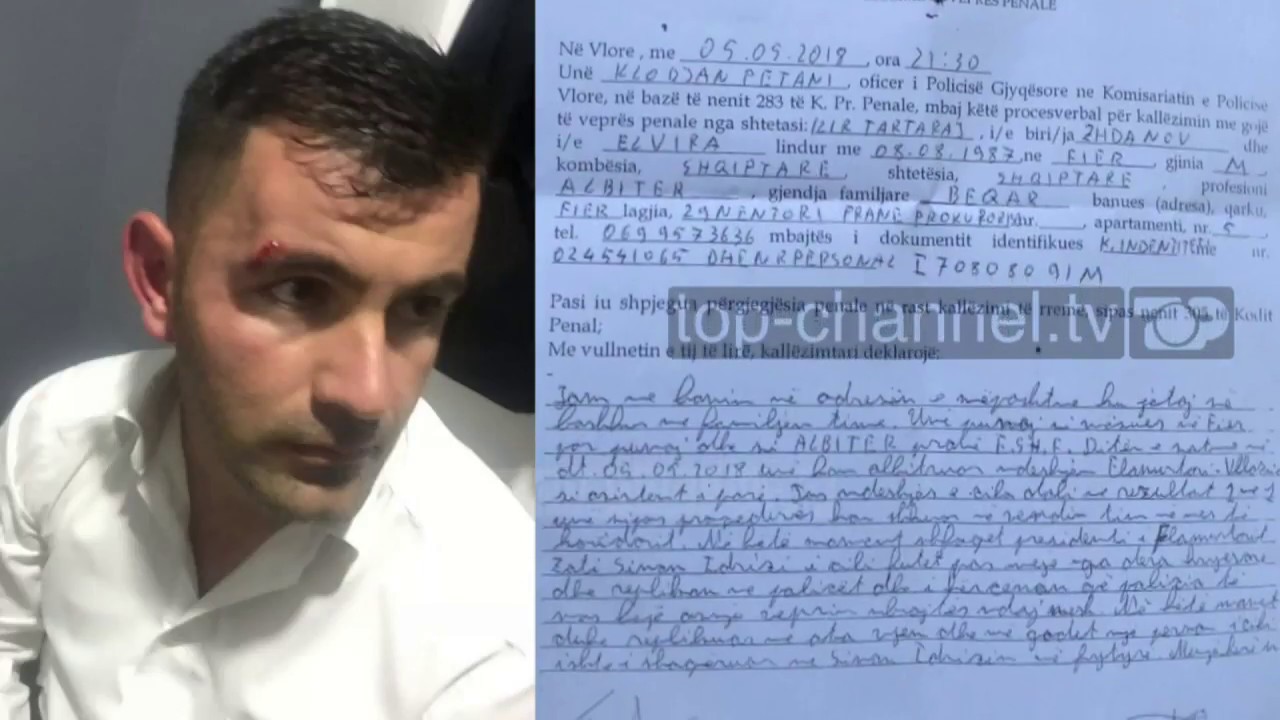 VEPRËS PENALE
Në Vlore, me 05.05.2018, ora 21:30
Unë KLODJAN PETANI, oficer i Policisë Gjyqësore ne Komisariatin e Policisë
Vlore, në bazë të nenit 283 të K. Pr. Penale, mbaj këtë procesverbal për kallëzimin me gojë
të veprës penale nga shtetasi: ILIR TARTARAJ, i/e biri/ja ZHDANOV dhe
i/e ELVIRA lindur me 08.08.1987, ne FIER, gjinia M,
kombësia, SHQIPTARE, shtetësia, SHQIPTARE, profesioni
ALBITER, gjendja familjare BEQAR banues (adresa), qarku,
FIER lagjia, 29 NENTORI PRANË PROKURORI shr. , apartamenti, nr. 5,
tel. 0699573636 mbajtës i dokumentit identifikues K.INDENTITETI me nr.
024541065 DHE NR PERSONAL I70808091M
Pasi iu shpjegua përgjegjësia penale në rast kallëzimi të rreme, sipas nenit 305 të Kodit
Penal;
top-channel.tv
Me vullnetin e tij të lirë, kallëzimtari deklarojë:
Jam me banim në adresën e mëposhtme ku jetoj së
bashku me familjen time. Unë punoj si mësues në Fier
por punoj dhe si ALBITER pranë F.SH.F. Ditën e
dt. 05.05.2018 unë kam albitruar ndeshjen Flamurtari-Vllaznia
si asistent i parë. Pas ndeshjes e cila doli me rezultat
në
korridorit. Në këtë moment shfaqet presidenti i Flamurtarit
Zoti Sinan Idrizi i cili futet pas meje nga dera hyrëse
dhe replikon me policët dhe i kërcënon që policia të
mos bëjë asnjë veprim Në këtë moment
duke replikuar me ata vjen dhe me godet një person i cili
ishte i shoqëruar me Sinan Idrizin në fytyrë.